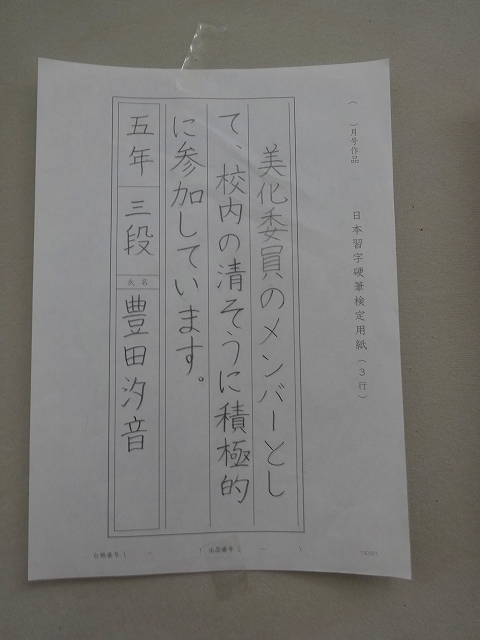 ( )月号作品
日本習字硬筆検定用紙(3行)
美化委員のメンバーとし
て、校内の清そうに積極的
に参加しています。
五年
三段
氏名
豊田汐音
出品番号( - )